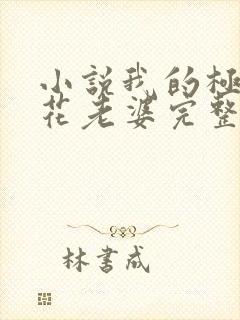 小説我的極
花老婆完整
林書成